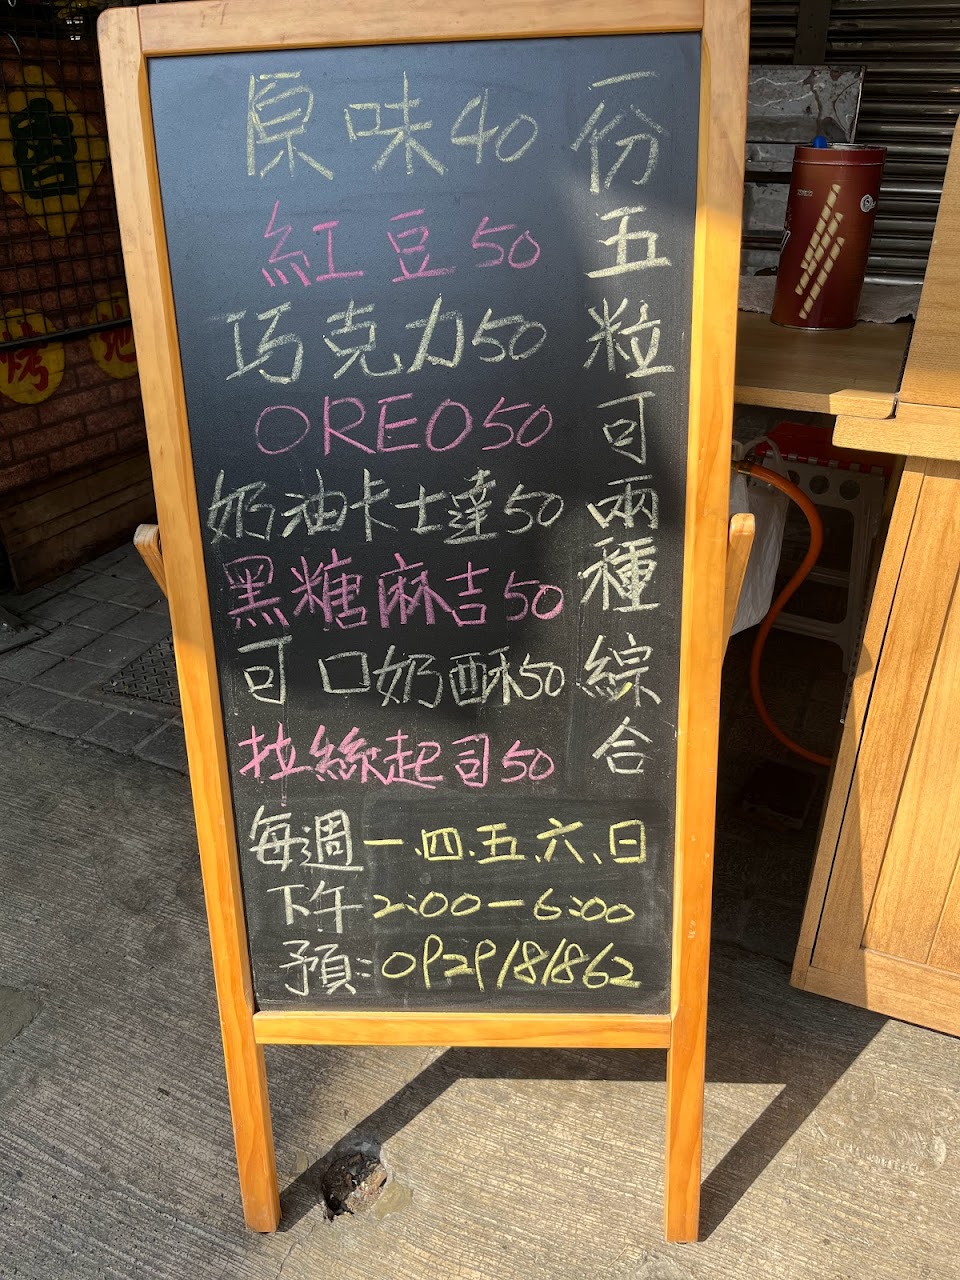 原味40
紅豆50
巧克力50
OREO50
奶油卡士達50
黑糖麻吉50
可口奶酥50
拉絲起司50
一份五粒可兩種綜合
每週一、四、五、六、日
下午2:00-6:00
預:0929181862
燒
地